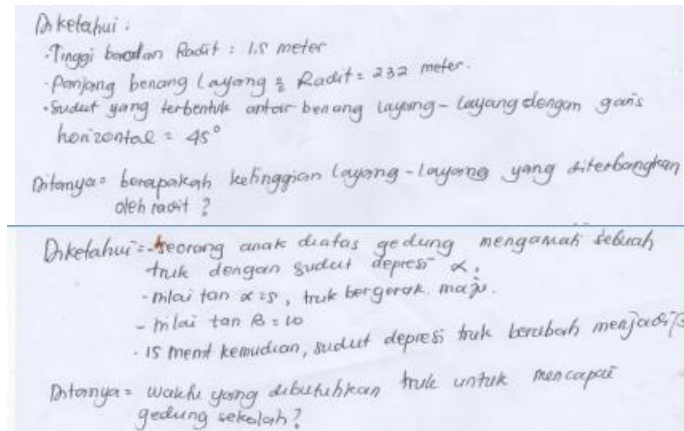 Diketahui :
·Tinggi badan Radit : 1.5 meter
·Panjang benang layang2 Radit = 232 meter.
·Sudut yang terbentuk antar benang layang-layang dengan garis
horizontal = 45°
Ditanya = berapakah ketinggian layang-layang yang diterbangkan
oleh radit ?
Diketahui = -seorang anak diatas gedung mengamati sebuah
truk dengan sudut depresi α.
- nilai tan α = 5, truk bergerak maju.
- nilai tan β = 10
- 15 menit kemudian, sudut depresi truk berubah menjadi β
Ditanya = waktu yang dibutuhkan truk untuk mencapai
gedung sekolah?